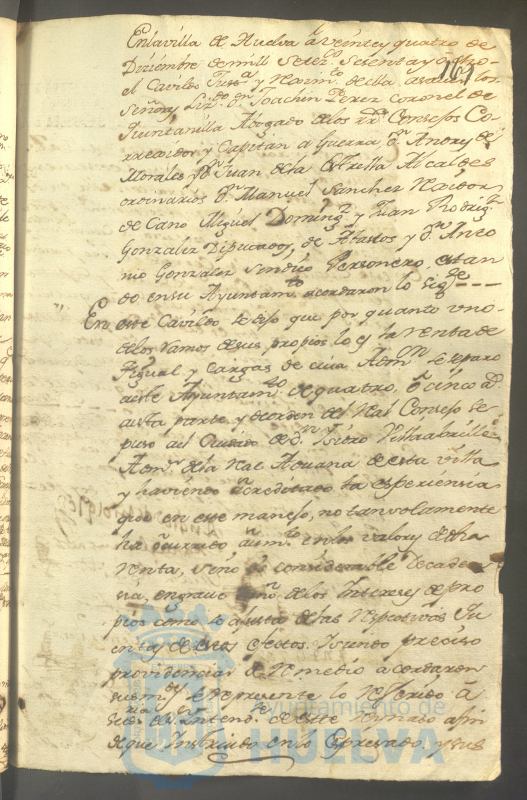 En la villa de Huelva à veinte y quatro de
Diziembre de mill setez.s sesenta y ocho
el Cavildo Just.a y Rexim.to de ella a saver los
Señores Liz.do D.n Joachin Perez Coronel de
Quintanilla Abogado de los R.s Consejos Co-
rrexidor y Capitan à Guerra D.n Andres de
Morales y D.n Juan de la Estrella Alcaldes
ordinarios D.n Manuel Sanchez Rexidor
de Cano Miguel Doming.z y Juan Rodrig.z
Gonzalez Diputados, de Abastos y D.n Anto
nio Gonzalez Sindico Personero, estan
do en su Ayuntam.to acordaron lo sig.te
En este Cavildo se dijo que por quanto uno
de los ramos de sus propios lo es la renta de
y cargas de cuia Adm.on se separò
a este Ayuntam.to de quatro, ò cinco a.s
a esta parte y de orden del Real Consejo se
puso al Cuidado de D.n Isidro Villaabrille
Adm.or de la Real Aduana de esta villa
y haviendo acreditado la esperiencia
que en este manejo, no tan solamente
ha aum.to en los valores de dha
renta, sino de considerable decaden
cia, en grave daño de los Intereses de pro
pios como se ajusta de las respectivas Qu
entas de estos efectos. Siendo preciso
providenciar de remedio acordaron
se represente lo referido à
de Intend.te de este Reynado a fin
de que Instruido en lo Espresado, y sus
161
Ayuntamiento de
HUELVA